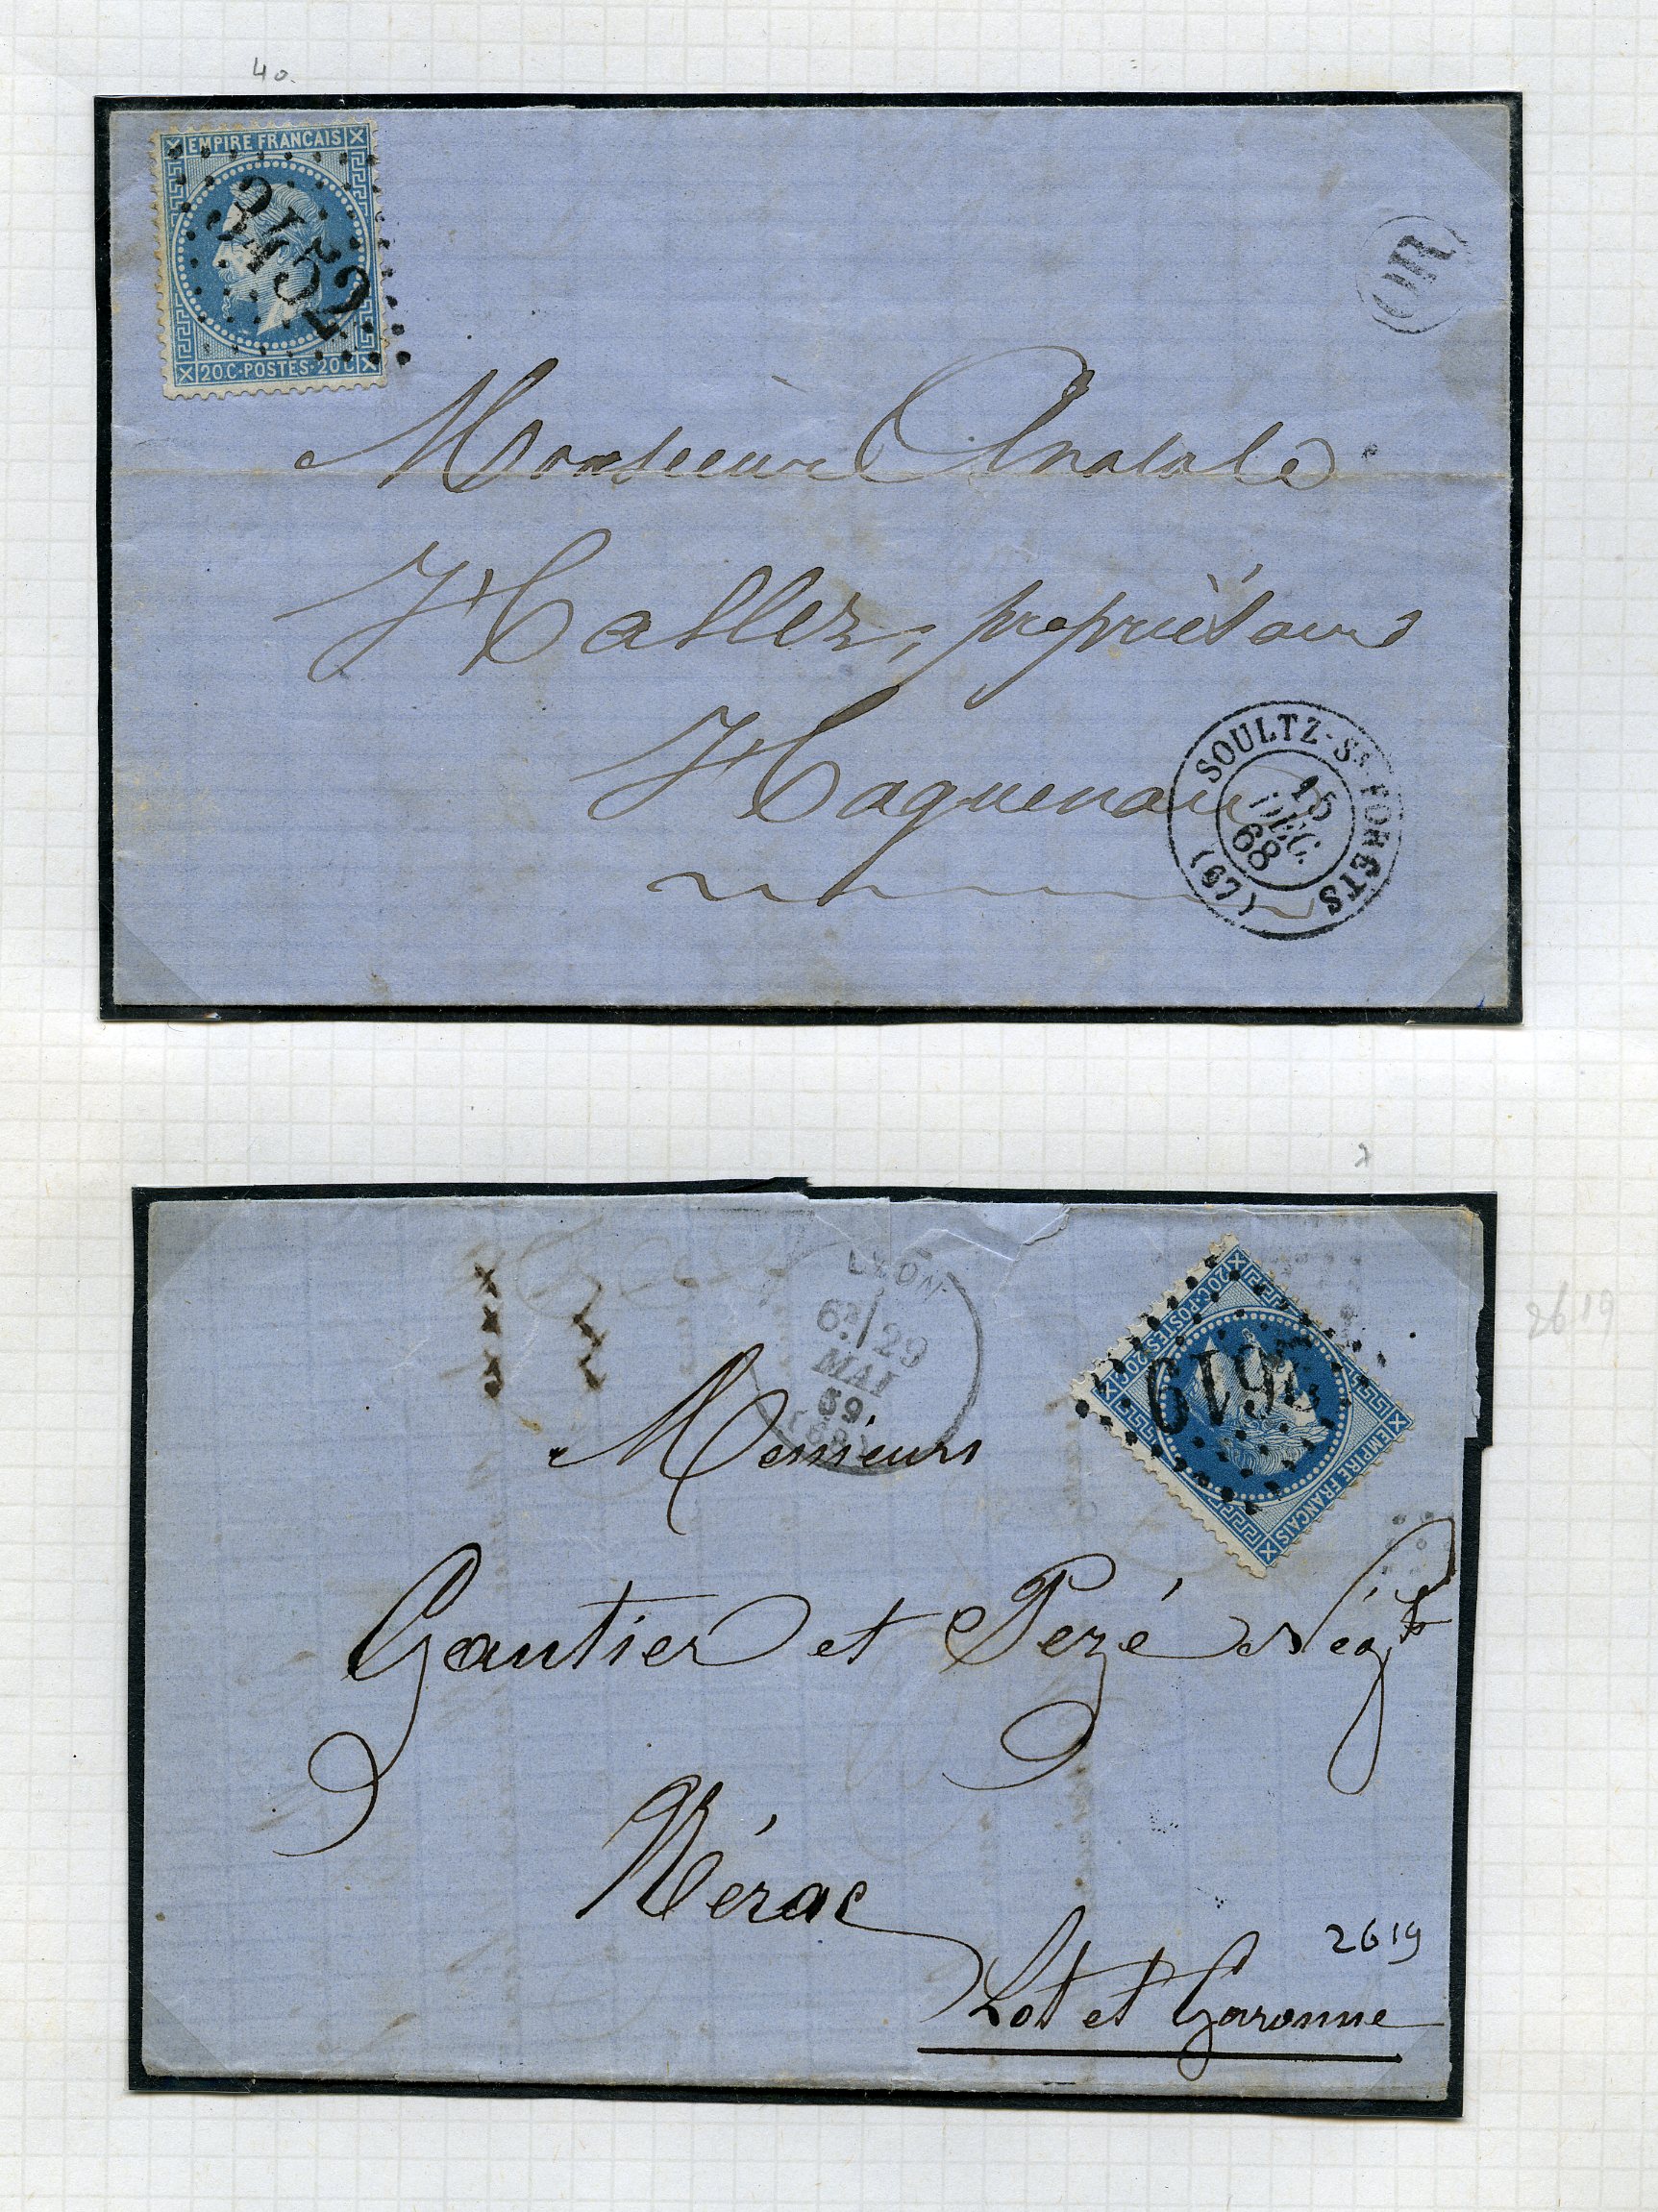 40.
EMPIRE FRANCAIS
3452
20.C·POSTES·20C
OR
Monsieur Anatole
Haller, propriétaire
Haguenau
SOULTZ-Ss FORETS
15
DEC.
68
(67)
LYON
6E/29
MAI
69
20C·POSTES·20C
2619
EMPIRE FRANCAIS
2619
Messieurs
Gautier et Pezé Négts
Nérac
2619
Lot et Garonne